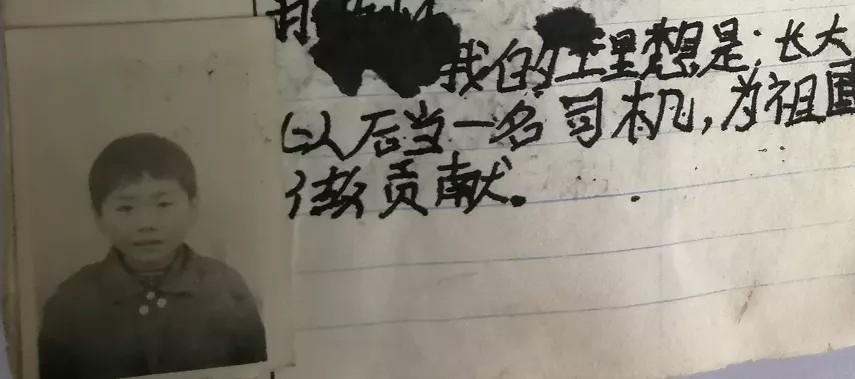 我的理想是:长大
以后当一名司机,为祖国
做贡献。